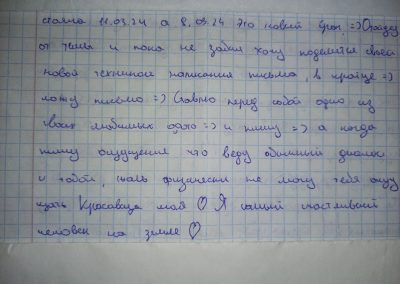 столко 11.03.24 а 8.03.24 это новый срок =) Отойду
от темы и пока не забыл хочу поделится своей
новой техникой написания письма, в кратце =)
ложу письмо =) Ставлю перед собой одно из
твоих любимых фото =) и пишу =) а когда
пишу ощущение что веду обычный диалог
и тобой, жаль физически не могу тебя ощу
щать Красавица моя ♡ Я самый счастливый
человек на земле ♡